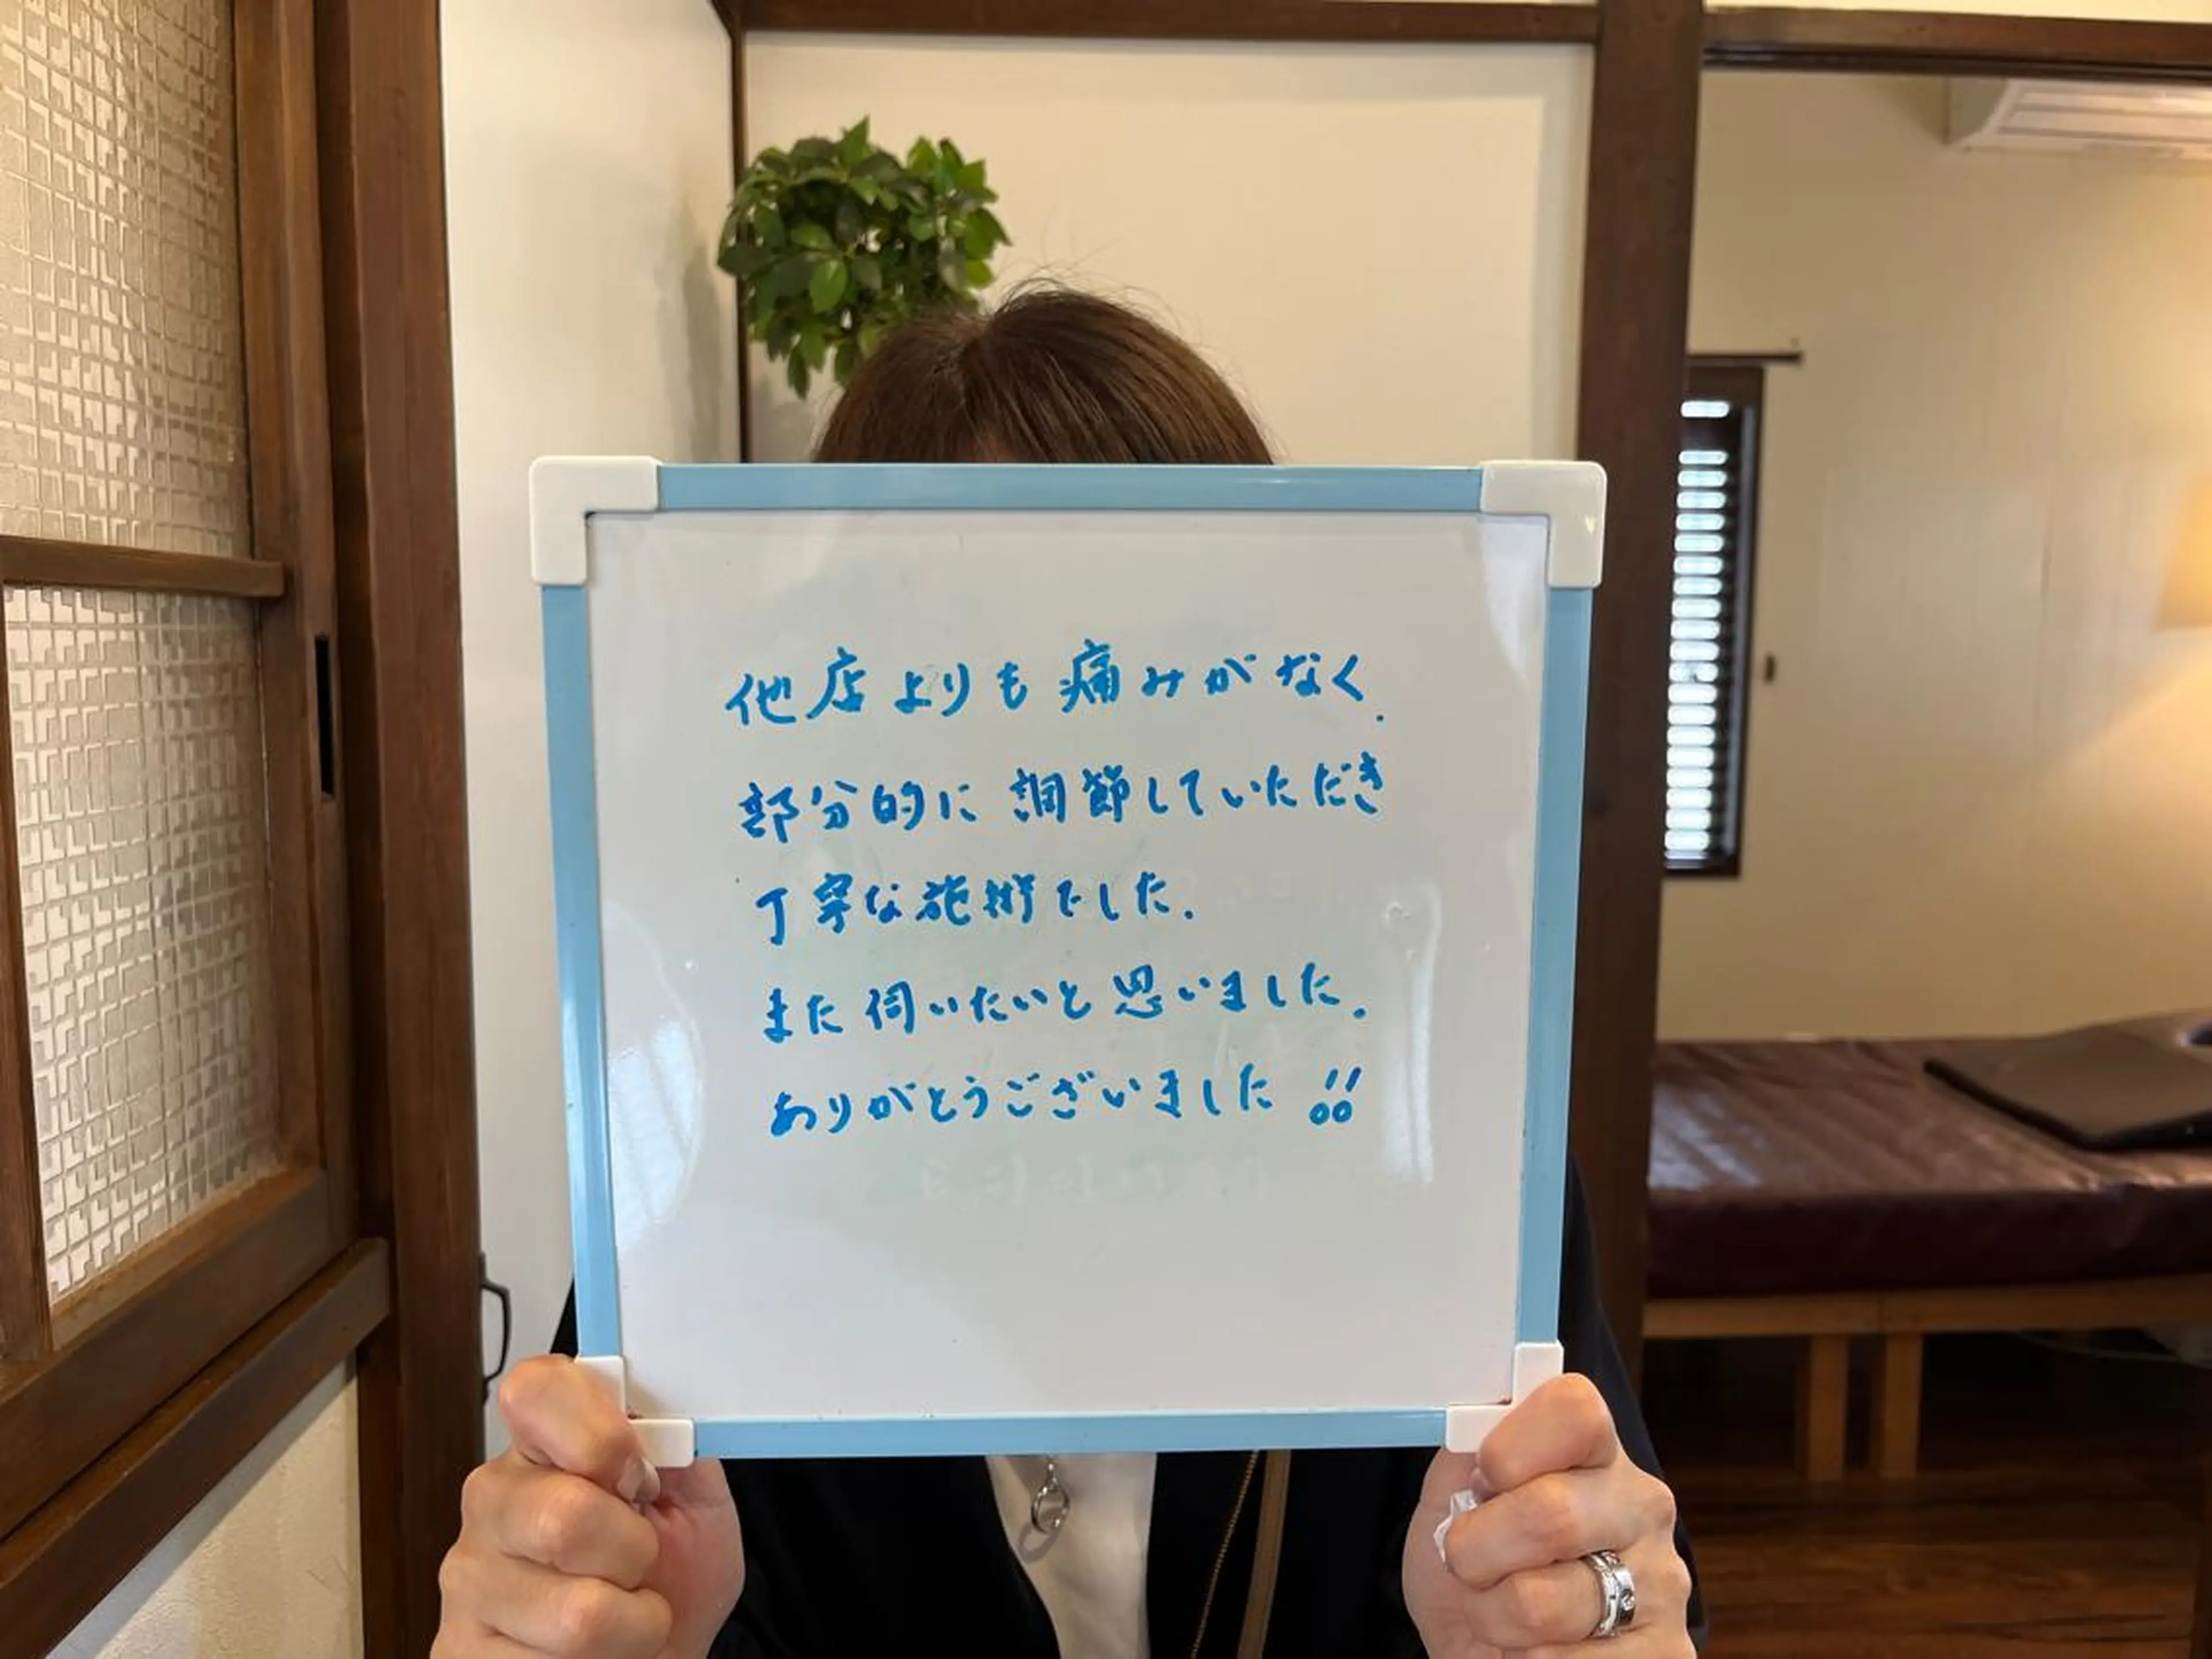 他店よりも痛みがなく.
部分的に調節していただき
丁寧な施術でした.
また伺いたいと思いました.
ありがとうございました!!